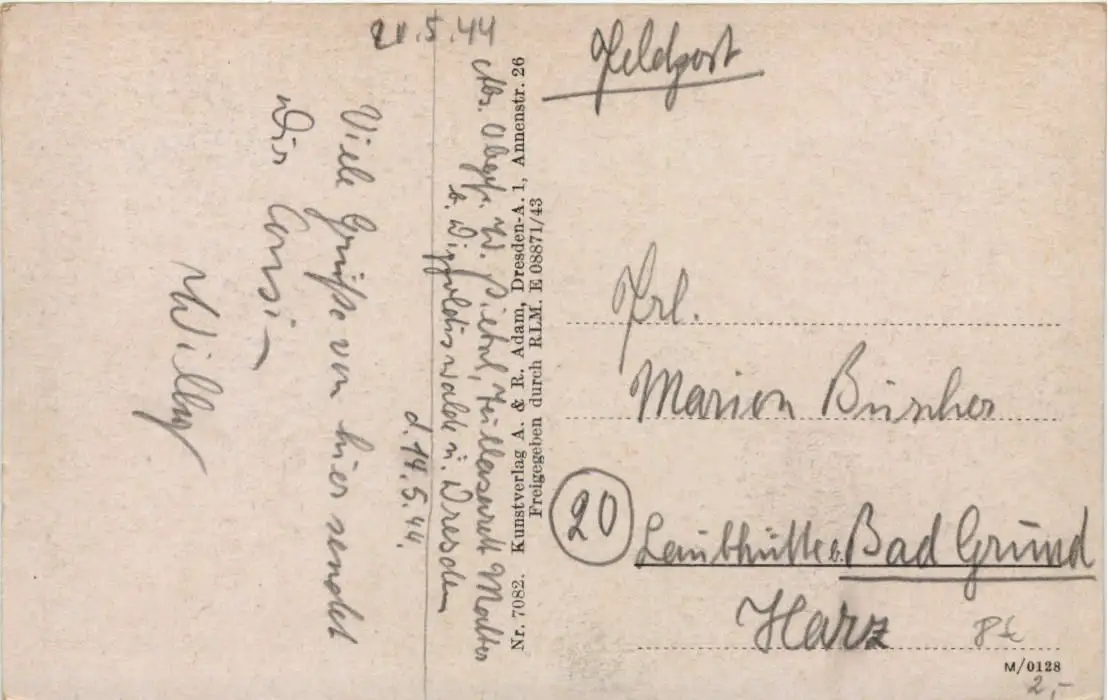 21.5.44
d. 14.5.44.
Viele Grüsse von hier sendet
Dir
Willy
Abs. Obgefr. W. Teillazarett Malter
b. Dippoldiswalde ü. Dresden
Nr. 7082. Kunstverlag A. & R. Adam, Dresden-A. 1, Annenstr. 26
Freigegeben durch RLM. E 08871/43
Feldpost
Frl.
Marion Büscher
20
Laubhütte b. Bad Grund
Harz
M/0128
2,-